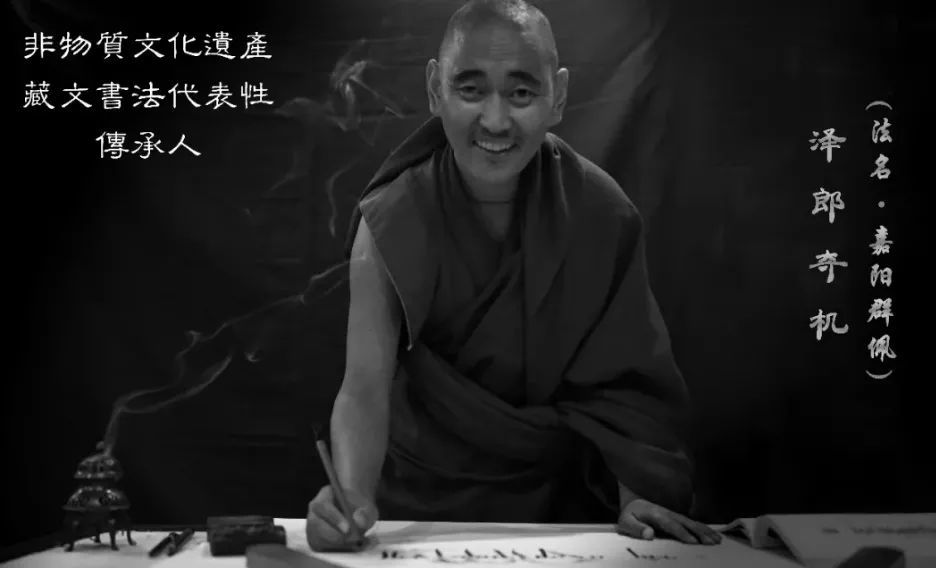 非物質文化遺產
藏文書法代表性
傳承人
(法名·嘉阳群佩)
泽郎奇机